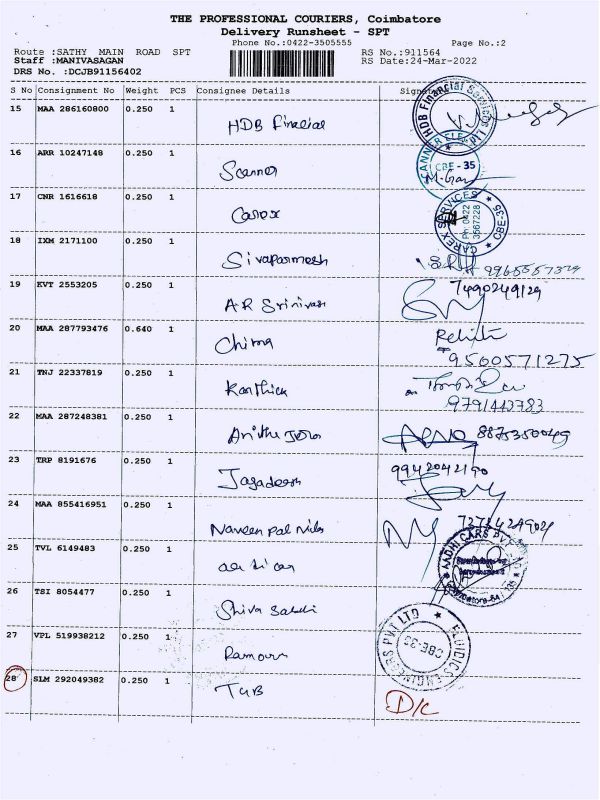 THE PROFESSIONAL COURIERS, Coimbatore
Delivery Runsheet - SPT
Phone No.:0422-3505555 Page No.:2
Route :SATHY MAIN ROAD SPT RS No.:911564
Staff :MANIVASAGAN RS Date:24-Mar-2022
DRS No. :DCJB91156402
S No Consignment No Weight PCS Consignee Details
15 MAA 286160800 0.250 1 HDB Finacial HDB Financial Services
16 ARR 10247148 0.250 1 Scanner CBE - 35
17 CNR 1616618 0.250 1 Carex CAREX SERVICES CBE-35 Ph: 0422 3667228
18 IXM 2171100 0.250 1 Sivaparmesh
19 KVT 2553205 0.250 1 AR Srinivas 7490249129
20 MAA 287793476 0.640 1 Chitra 9500571275
21 TNJ 22337819 0.250 1 Karthick 9791443783
22 MAA 287248381 0.250 1 8875350049
23 TRP 8191676 0.250 1 Jagadeesh 9942042190
24 MAA 855416951 0.250 1 Naveen pal
25 TVL 6149483 0.250 1 AADHI CARS PVT
26 TSI 8054477 0.250 1 Shiva
27 VPL 519938212 0.250 1 FLUIDICS ENGINEERS PVT LTD CBE-35
28 SLM 292049382 0.250 1 TUB D/C